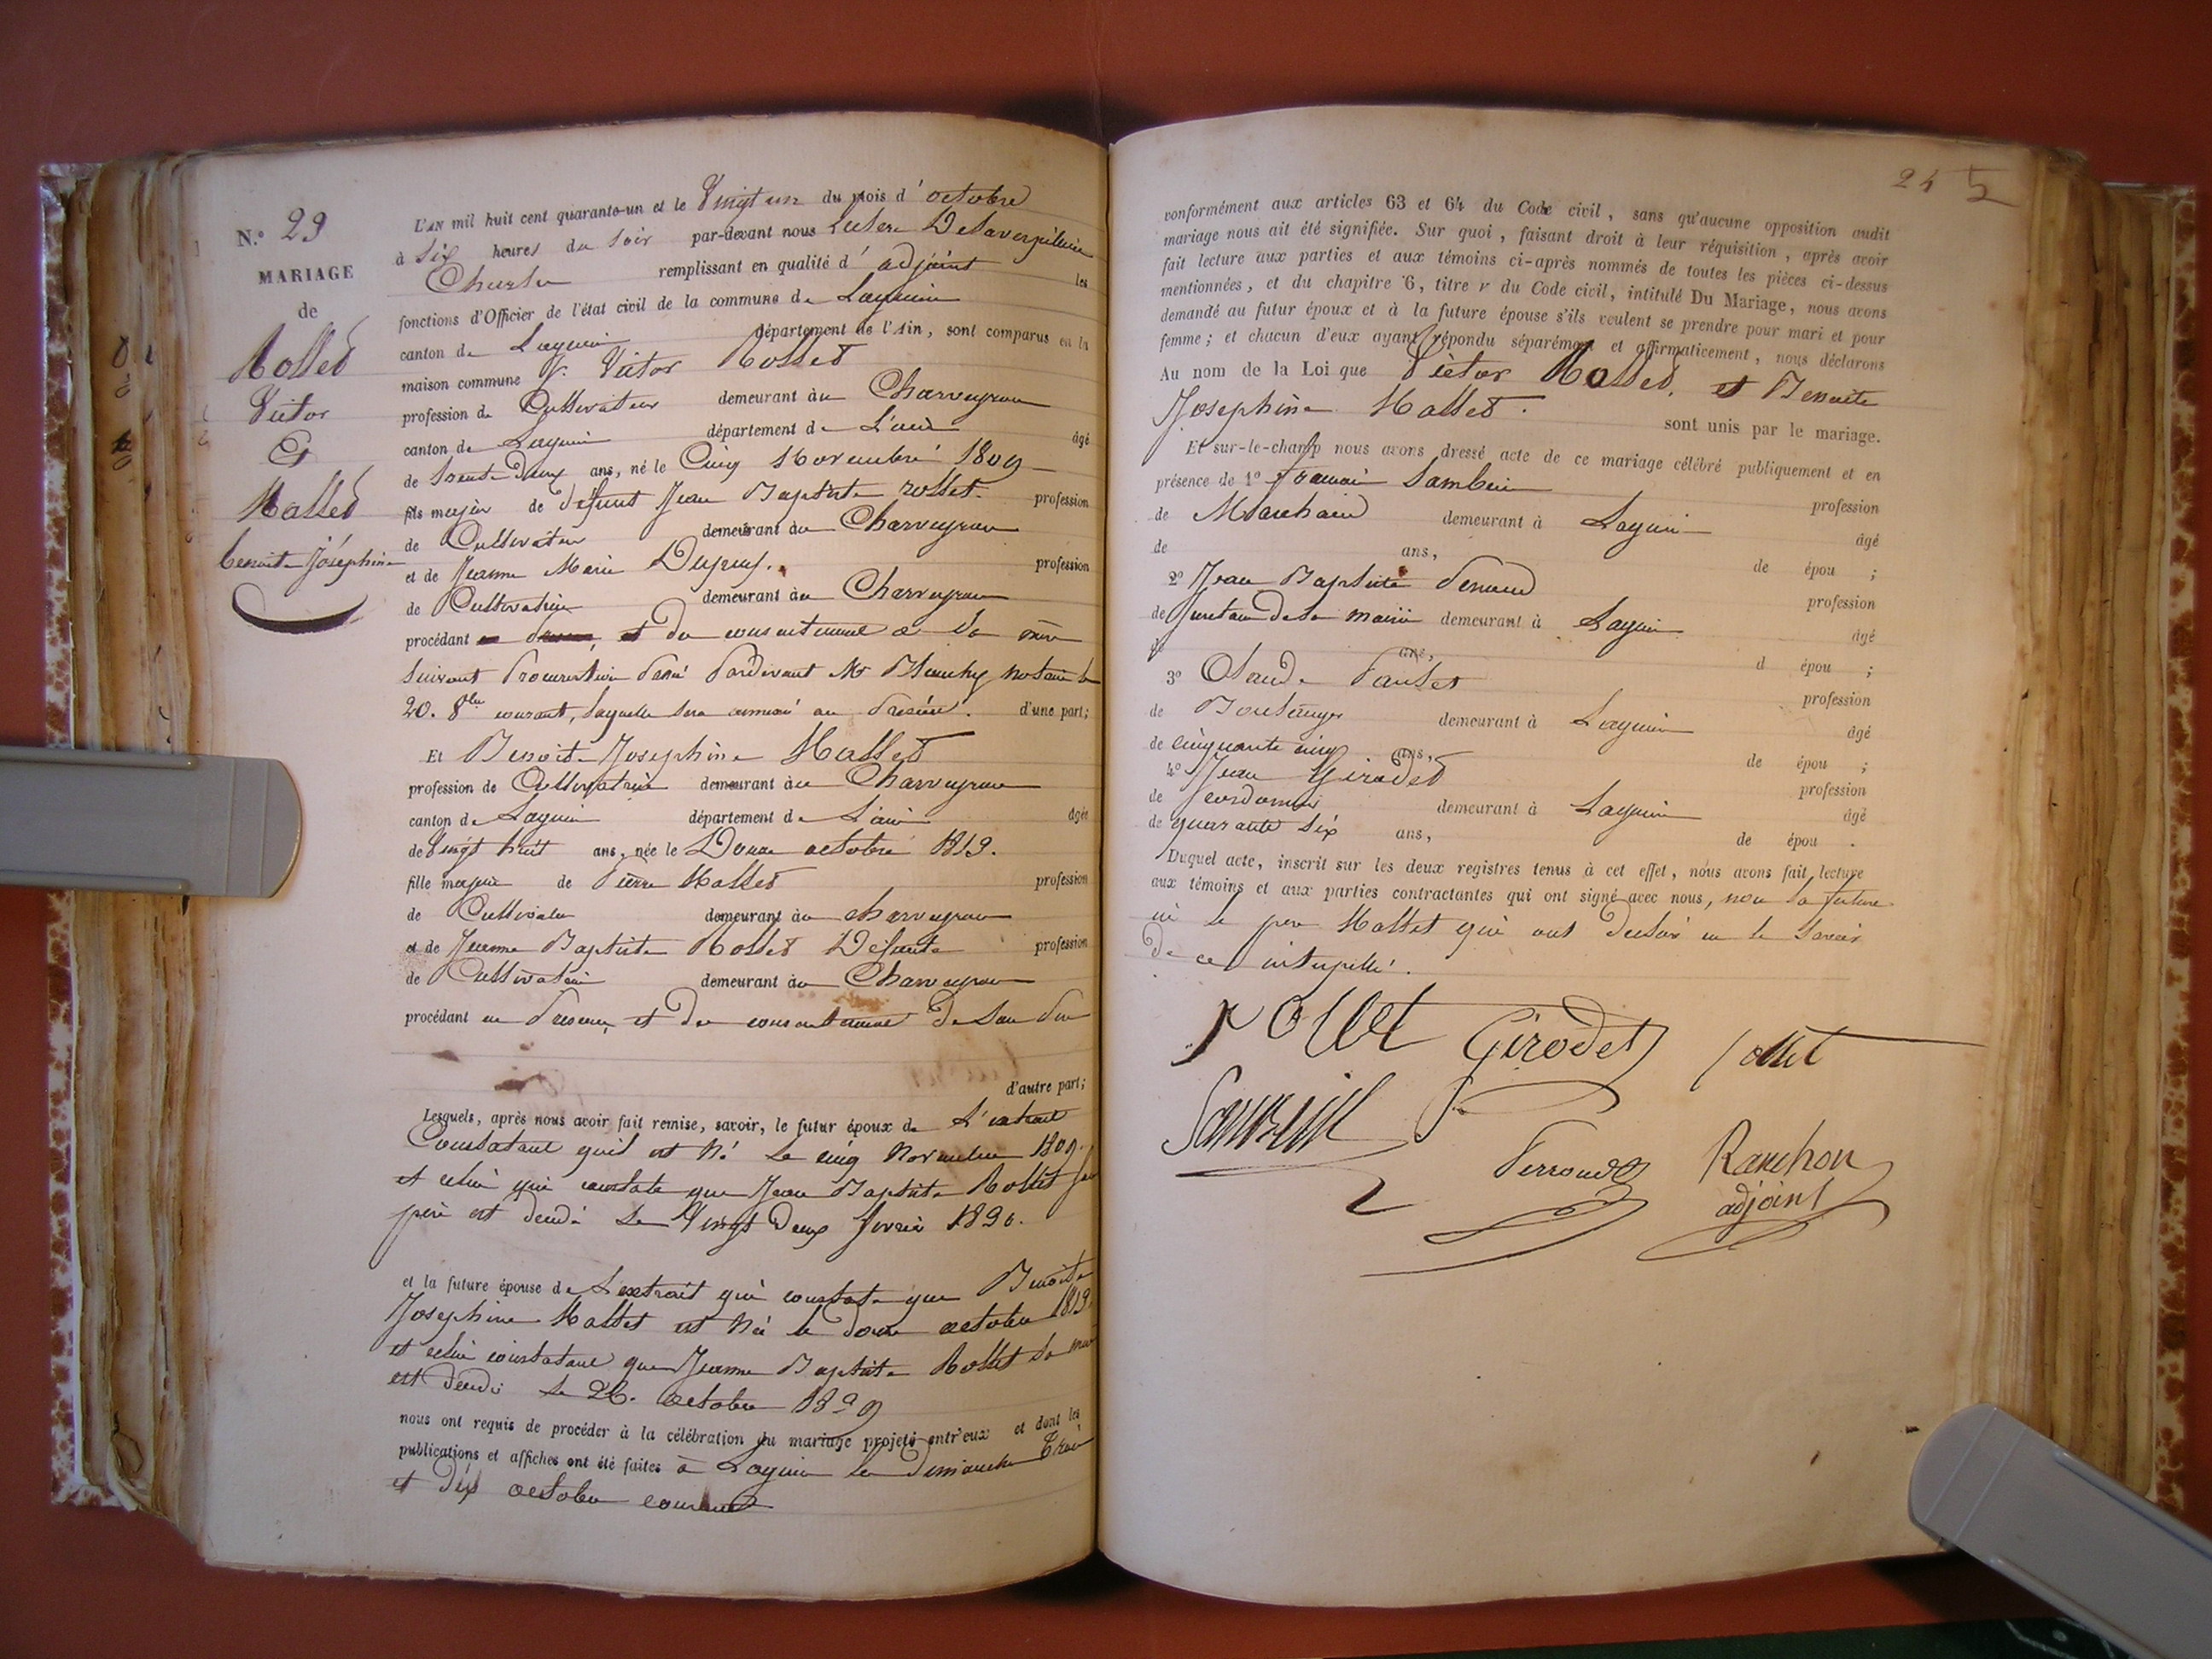 N.º 29
MARIAGE
de
Rosset
Victor
Et
Mallet
benoite Joséphine
L'AN mil huit cent quarante-un et le Vingt un du mois d'octobre
à six heures du soir par-devant nous
Charles remplissant en qualité d'adjoint les
fonctions d'Officier de l'état civil de la commune de Lagnieu
canton de Lagnieu département de l'Ain, sont comparus en la
maison commune Victor Rosset
profession de Cultivateur demeurant à Charveyron
canton de Lagnieu département de L'ain âgé
de trente Deux ans, né le Cinq Novembre 1809
fils majeur de défunt Jean Baptiste rosset profession
de Cultivateur demeurant à Charveyron
et de Jeanne Marie profession
de Cultivatrice demeurant à Charveyron
procédant du consentement de Sa mère
suivant Procuration Passé Pardevant Me notaire le
20. 8bre courant, laquelle sera annexé au Présent. d'une part;
Et Benoite Josephine Mallet
profession de Cultivatrice demeurant à Charveyron
canton de Lagnieu département de L'ain âgée
de Vingt huit ans, née le Douze octobre 1813.
fille majeure de Pierre Mallet profession
de Cultivateur demeurant à charveyron
et de Jeanne Baptiste Rosset Défunte profession
de Cultivatrice demeurant à Charveyron
procédant en Présence et du consentement de Son Père
d'autre part;
Lesquels, après nous avoir fait remise, savoir, le futur époux de L'extrait
Constatant qu'il est Né le cinq Novembre 1809.
et celui qui constate que Jean Baptiste Rosset son
père est décédé le Vingt Deux février 1830.
et la future épouse de L'extrait qui constate que Benoite
Josephine Mallet est Née le douze octobre 1813.
et celui constatant que Jeanne Baptiste Rosset sa mère
est décédé le 26. octobre
nous ont requis de procéder à la célébration du mariage projeté entr'eux et dont les
publications et affiches ont été faites à Lagnieu les Dimanche trois
et dix octobre courant
24 5
conformément aux articles 63 et 64 du Code civil, sans qu'aucune opposition audit
mariage nous ait été signifiée. Sur quoi, faisant droit à leur réquisition, après avoir
fait lecture aux parties et aux témoins ci-après nommés de toutes les pièces ci-dessus
mentionnées, et du chapitre 6, titre v du Code civil, intitulé Du Mariage, nous avons
demandé au futur époux et à la future épouse s'ils veulent se prendre pour mari et pour
femme; et chacun d'eux ayant répondu séparément et affirmativement, nous déclarons
Au nom de la Loi que Victor Rosset, et Benoite
Josephine Mallet. sont unis par le mariage.
Et sur-le-champ nous avons dressé acte de ce mariage célébré publiquement et en
présence de 1º françois Sambuin profession
de Marchand demeurant à Lagnieu âgé
de ans, de épou ;
2º Jean Baptiste Perroud profession
de Secretaire de la mairie demeurant à Lagnieu âgé
de ans, d épou ;
3º Claude profession
de Boulanger demeurant à Lagnieu âgé
de cinquante cinq ans, de épou ;
4º Jean Girodet profession
de Cordonnier demeurant à Lagnieu âgé
de quarante six ans, de épou .
Duquel acte, inscrit sur les deux registres tenus à cet effet, nous avons fait lecture
aux témoins et aux parties contractantes qui ont signé avec nous, non la future
ni le père Mallet qui ont déclaré ne le savoir
de ce interpellé.
rosset Girodet
Perroud Ranchon
adjoint